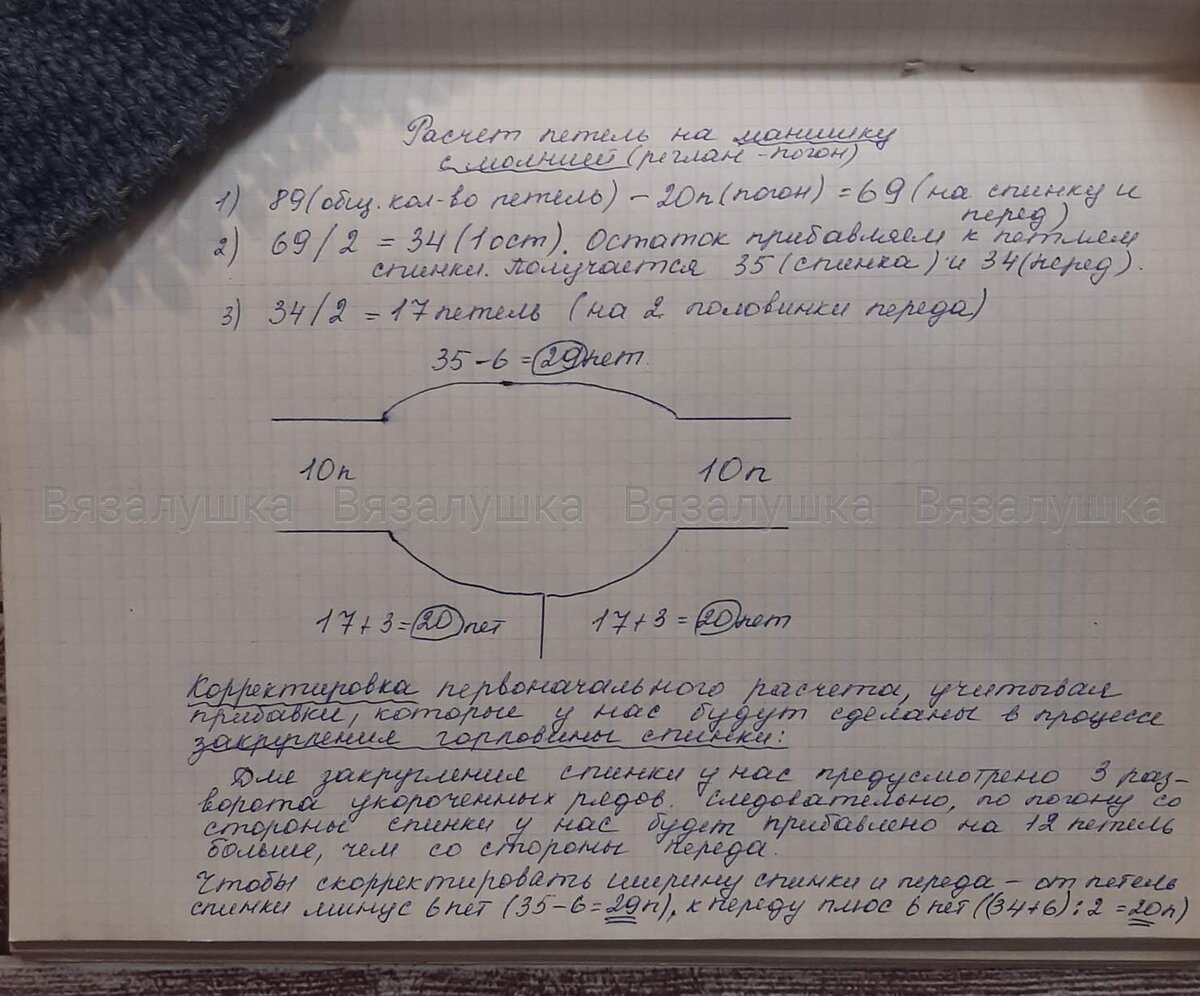 Расчет петель на манишку
с молнией (реглан-погон)
1) 89(общ. кол-во петель) – 20п(погон) = 69(на спинку и
перед)
2) 69/2 = 34(1ост). Остаток прибавляем к петлям
спинки. Получается 35(спинка) и 34(перед).
3) 34/2 = 17 петель (на 2 половинки переда)
35-6 = 29 пет.
10п 10п
Вязалушка Вязалушка Вязалушка Вязалушка
17+3=20 пет 17+3=20 пет
Корректировка первоначального расчета, учитывая
прибавки, которые у нас будут сделаны в процессе
закругления горловины спинки:
Для закругления спинки у нас предусмотрено 3 раз-
ворота укороченных рядов. Следовательно, по погону со
стороны спинки у нас будет прибавлено на 12 петель
больше, чем со стороны переда.
Чтобы скорректировать ширину спинки и переда – от петель
спинки минус 6 пет (35-6=29п), к переду плюс 6 пет ((34+6):2=20п)